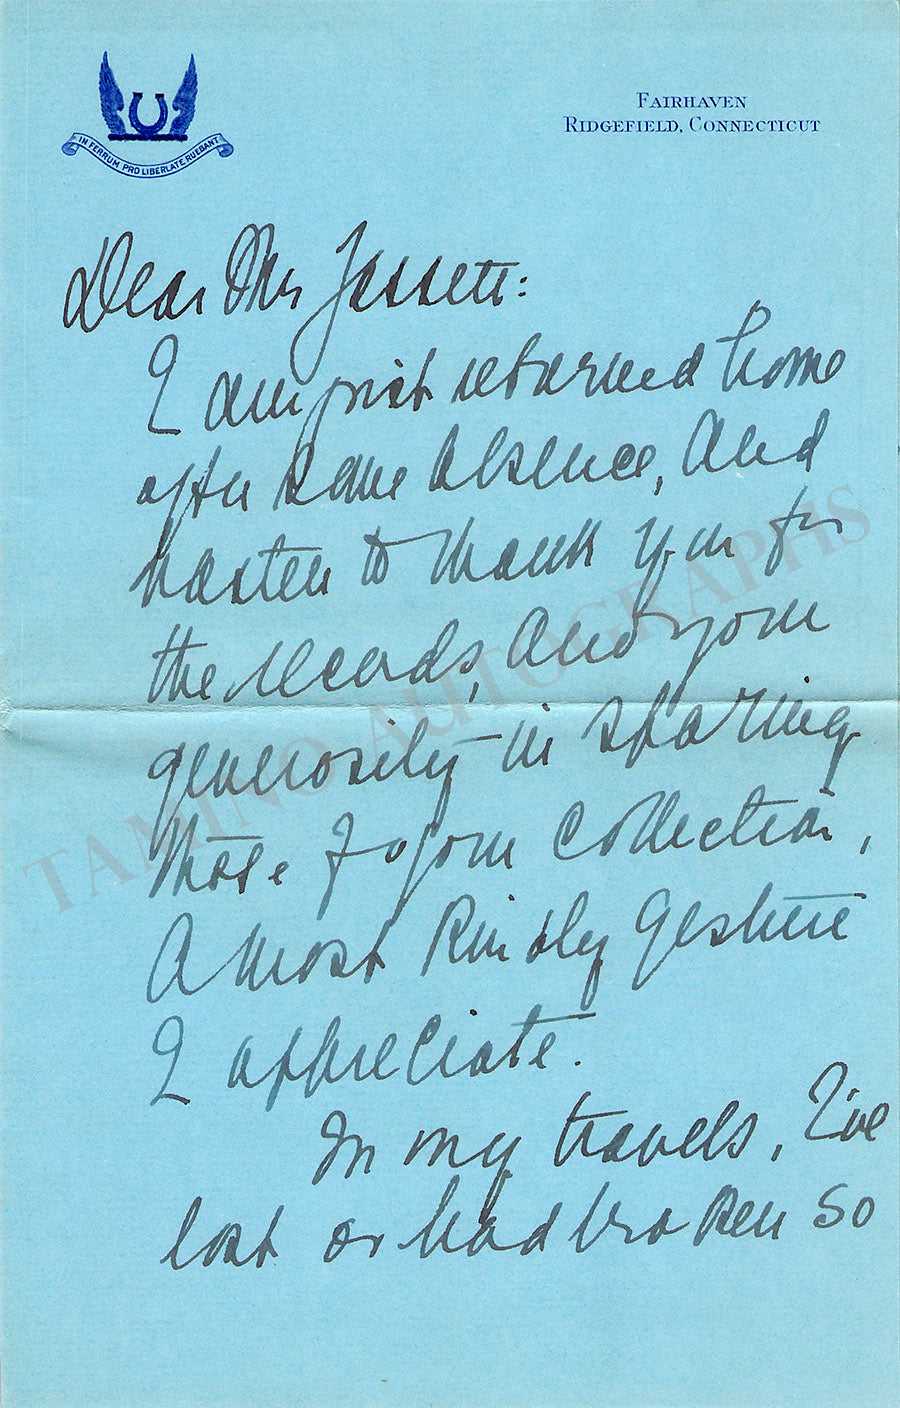 IN FERRUM PRO LIBERLATE RUEBANT
FAIRHAVEN
RIDGEFIELD, CONNECTICUT
Dear Mr Jassett:
I am just returned home
after some absence, and
hasten to thank you for
the records, and your
generosity in sparing
those of your collection,
a most kindly gesture
I appreciate.
In my travels, I've
lost or had broken so
TAMINO AUTOGRAPHS